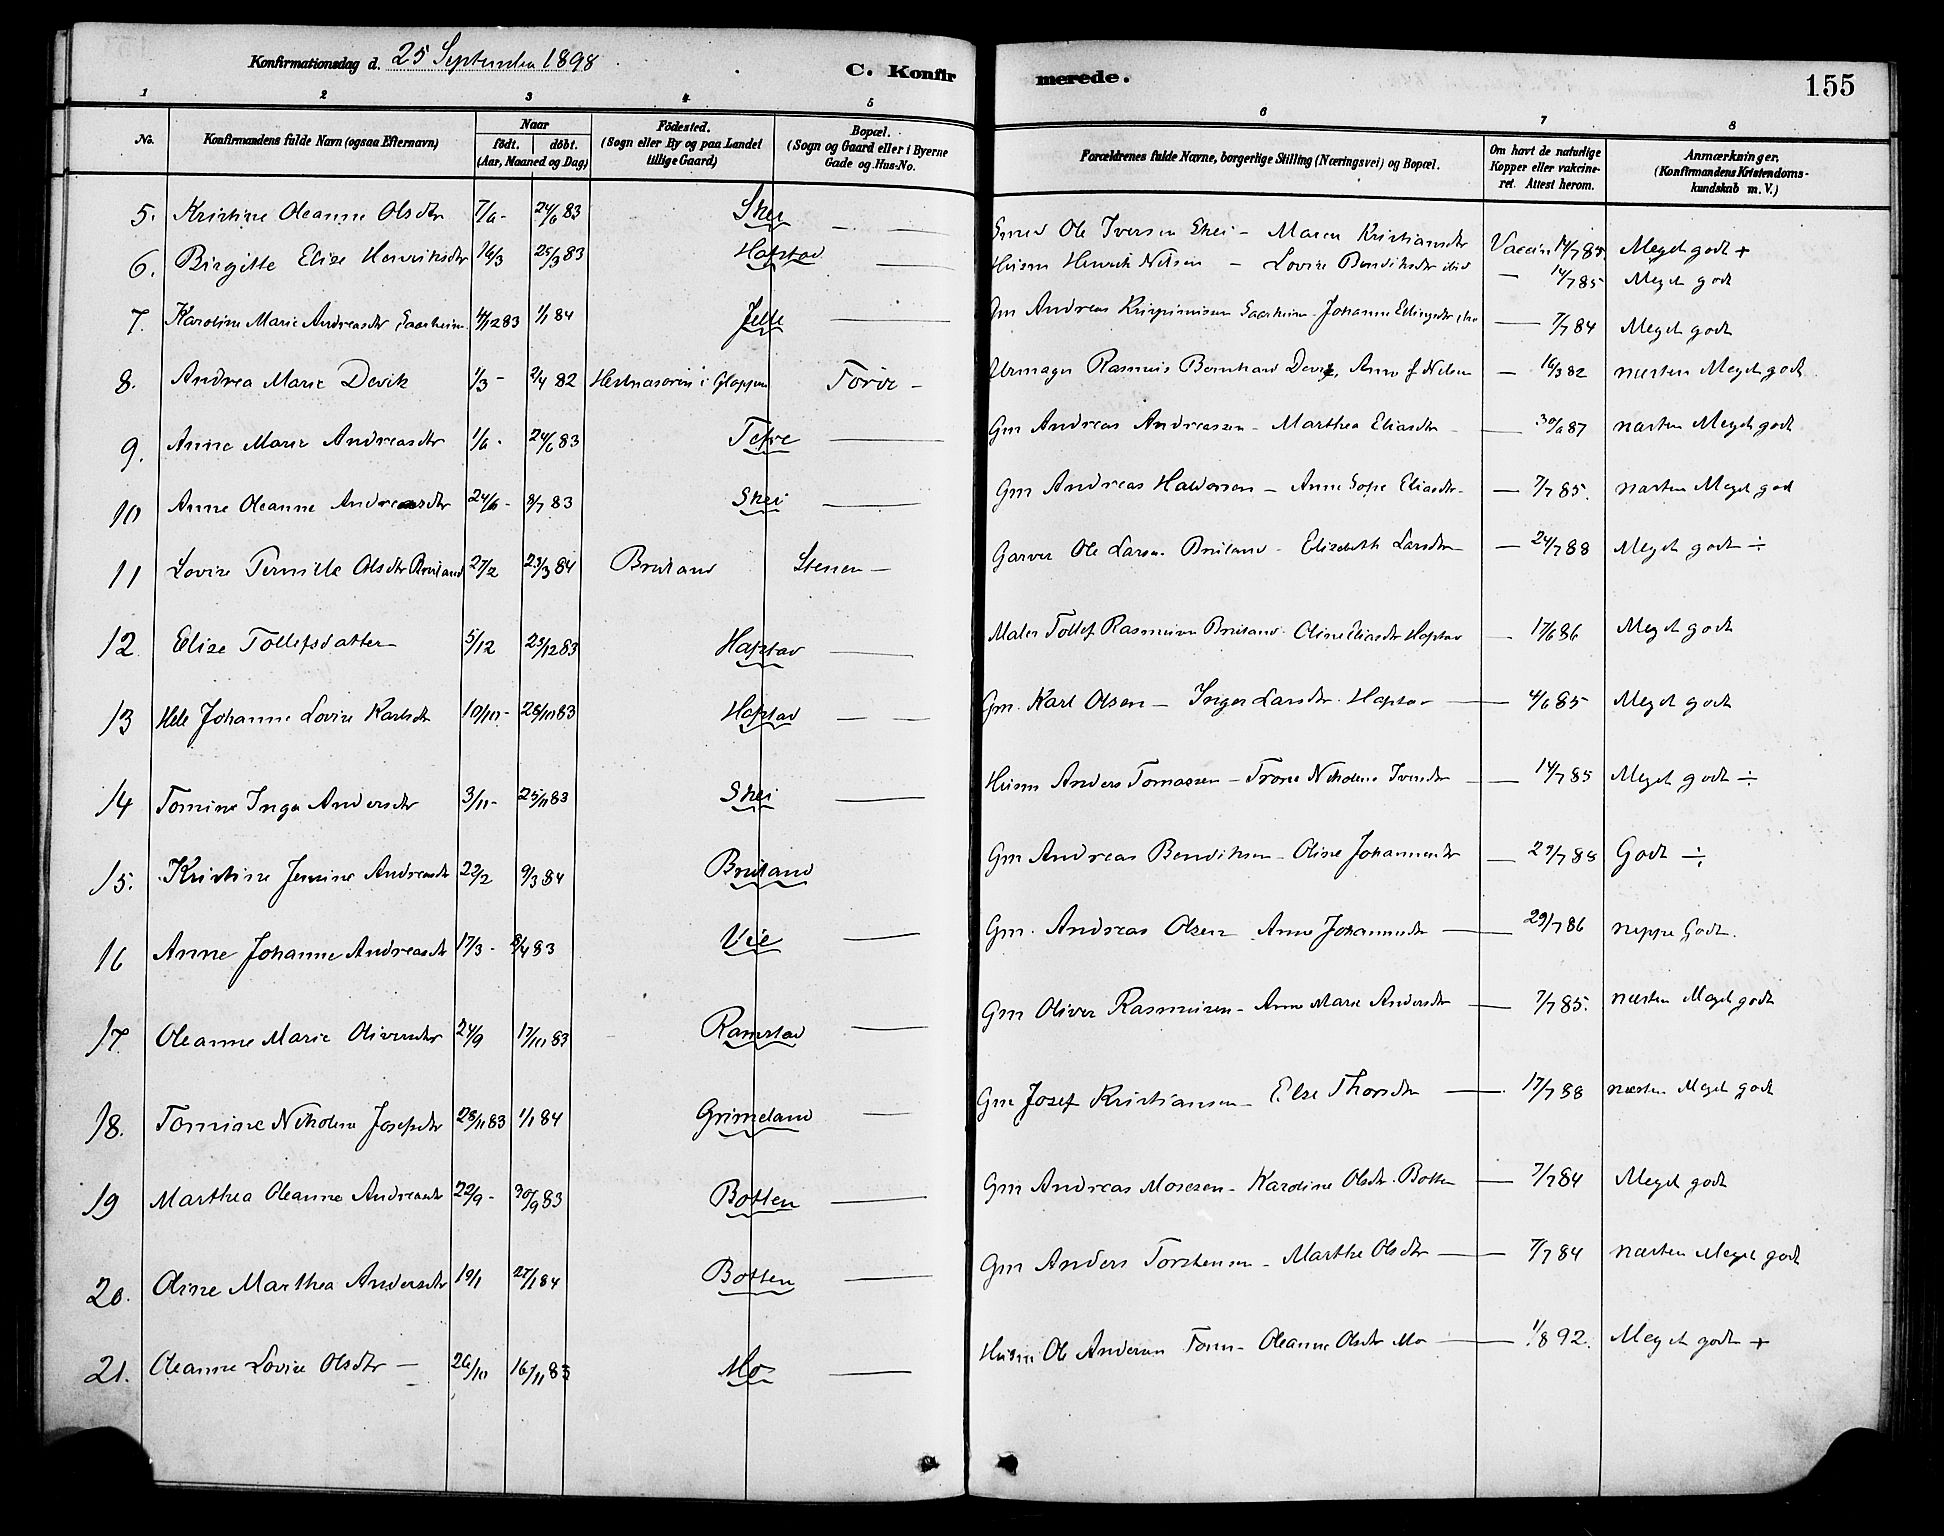 Konfirmationsdag d. 25 September 1898
C. Konfirmerede.
155
1 2 3 4 5 6 7 8
No. Konfirmandens fulde Navn (ogsaa Efternavn) Naar födt. döbt. (Aar, Maaned og Dag) Födested. (Sogn eller By og paa Landet tillige Gaard) Bopæl. (Sogn og Gaard eller i Byerne Gade og Hus-No. Forældrenes fulde Navne, borgerlige Stilling (Næringsvei) og Bopæl. Om havt de naturlige Kopper eller vakcineret. Attest herom. Anmærkninger. (Konfirmandens Kristendomskundskab m. V.)
5. Kristine Oleanne Olsdtr 7/6 - 24/6 83 Skei — Smed Ole Iversen Skei - Maren Kristiansdtr Vaccin 14/7 85. Meget godt +
6. Birgitte Elise Henriksdtr 16/3 25/3 83 Hafstad — Husm Henrik Nilsen - Lovise Bendiksdtr ibid — 14/7 85 Meget godt
7. Karoline Marie Andreasdtr Saarheim 4/12 83 1/1 84 — Gm Andreas Saarheim - Johanne — 7/7 84 Meget godt
8. Andrea Marie Devik 1/3 - 2/4 82 i Gloppen Förde - Urmager Rasmus Bernhard Devik, Anne f Nilsen — 16/3 82 næsten Meget godt
9. Anne Marie Andreasdtr 1/6 - 24/6 83 Tefre — Gm Andreas Andreassen - Marthea Eliasdtr — 30/6 87 næsten Meget godt
10 Anne Oleanne Andreasdtr 24/6 - 8/7 83 Skei — Gm Andreas Haldorsen - Anne Sofie Eliasdtr - — 7/7 85. næsten Meget god
11 Lovise Pernille Olsdtr Bruland 27/2 23/3 84 Bruland Stenen - Garver Ole Larsen Bruland - Elisebeth Larsdtr — 24/7 88 Meget godt ÷
12 Elise Tollefsdatter 5/12 25/12 83 Hafstad — Maler Tollef Rasmusen Bruland - Oline Eliasdtr Hafstad — 17/6 86 Meget godt
13 Johanne Lovise Karlsdtr 10/10 - 28/10 83 Hafstad — Gm. Karl Olsen - Inger Larsdtr. Hafstad — 4/6 85 Meget godt
14 Tomine Inga Andersdtr 3/11 - 25/11 83 Skei — Husm Anders Tomassen - Trone Nikoline Iversdtr — 14/7 85 Meget godt ÷
15. Kristine Jensine Andreasdtr 22/2 9/3 84 Bruland Gm Andreas Bendiksen - Oline Johannesdtr — 29/7 88 Godt ÷
16 Anne Johanne Andreasdtr 17/3 - 8/4 83 Vie — Gm. Andreas Olsen Anne Johannesdtr — 29/7 86 neppe Godt.
17. Oleanne Marie Oliversdtr 24/9 17/10 83 Ramstad — Gm Oliver Rasmusen - Anne Marie Andersdtr — 7/7 85. næsten Meget godt
18. Tomine Nikoline Josefsdtr 28/11 83 1/1 84 Grimeland — Gm Josef Kristiansen - Else Thorsdtr — 17/7 88 næsten Meget godt
19 Marthea Oleanne Andreasdtr 22/9 - 30/9 83 Botten — Gm Andreas Mosesen - Karoline Olsdtr. Botten — 7/7 84 Meget godt
20. Oline Marthea Andersdtr 19/1 27/1 84 Botten — Gm Anders Torstensen - Marthe Olsdtr — 7/7 84 næsten Meget godt
21. Oleanne Lovise Olsdtr - 26/10 16/11 83 Mo — Husm Ole Andersen - Oleanne Olsdtr Mo — 1/8 92. Meget godt +